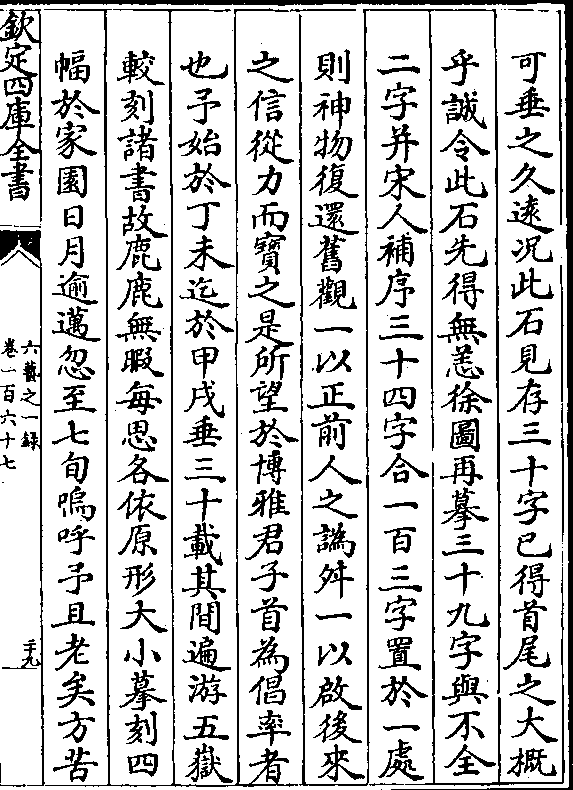 可垂之久遠况此石見存三十字已得首尾之大概
乎誠令此石先得無恙徐圖再摹三十九字與不全
二字并宋人補序三十四字合一百三字置於一處
則神物復還舊觀一以正前人之譌舛一以啟後來
之信從力而寶之是所望於博雅君子首為倡率者
也予始於丁未迄於甲戌垂三十載其間遍游五嶽
較刻諸書故鹿鹿無暇每思各依原形大小摹刻四
幅於家園日月逾邁忽至七旬嗚呼予且老矣方苦
欽定四庫全書
六藝之一錄
卷一百六十七
二十九